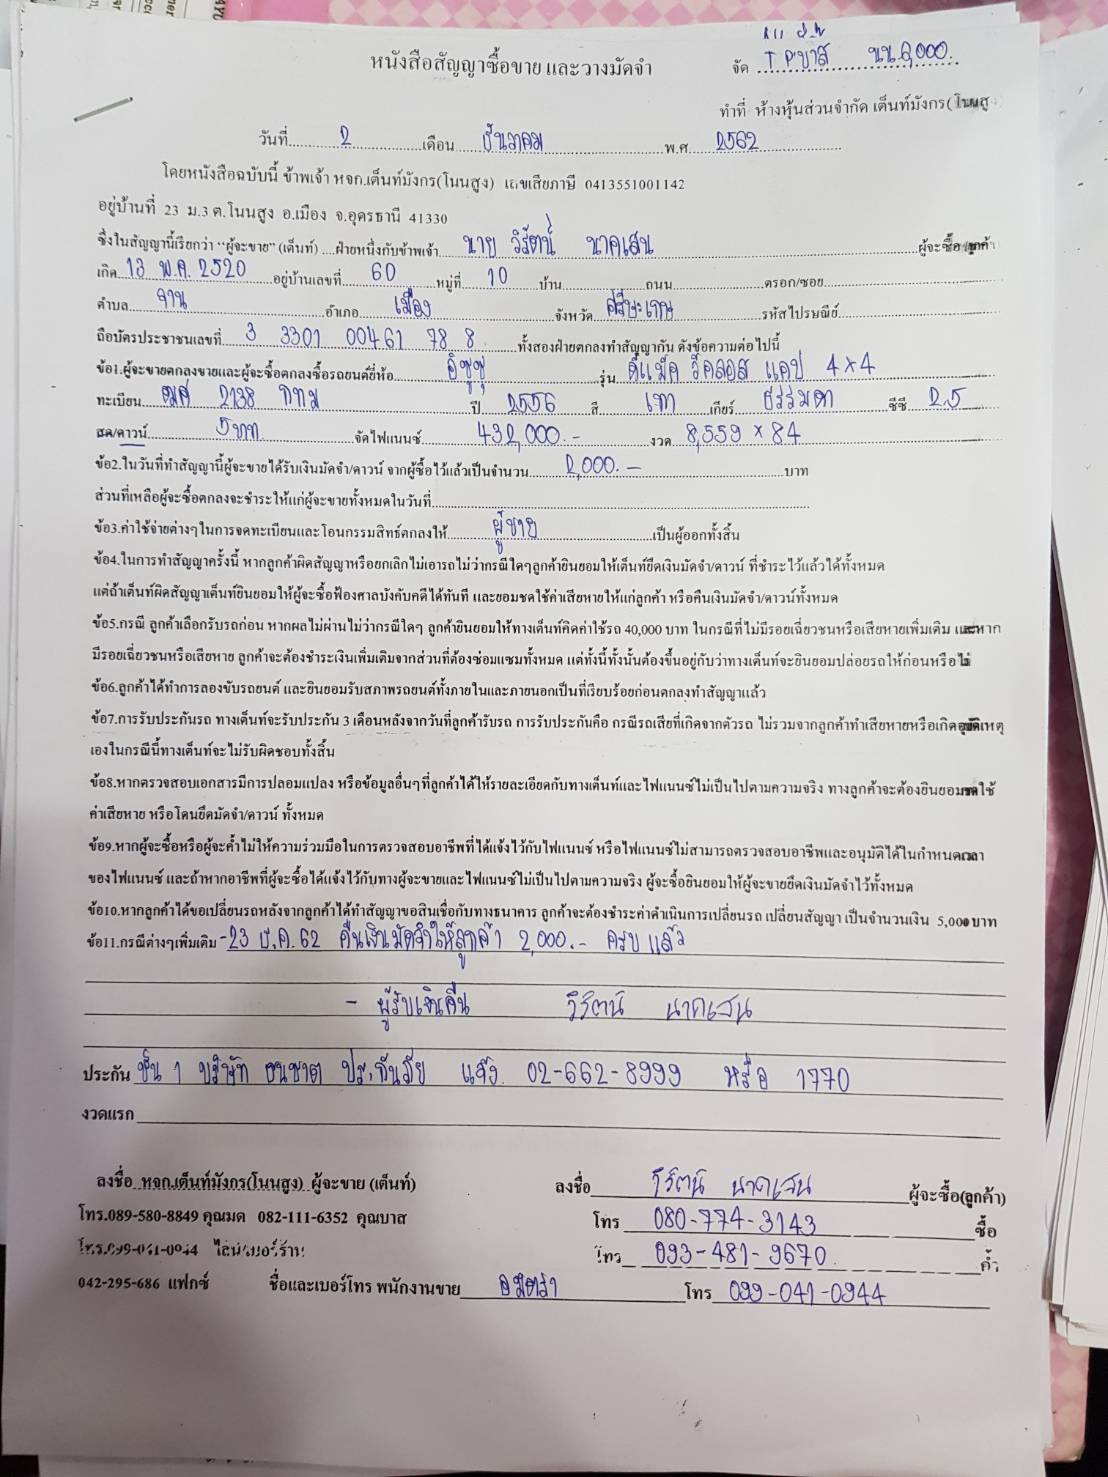 หนังสือสัญญาซื้อขาย และวางมัดจำ
จัด T P'บาส นน.6,000.
ทำที่ ห้างหุ้นส่วนจำกัด เต็นท์มังกร(โนนสูง
วันที่ 2 เดือน ธันวาคม พ.ศ. 2562
โดยหนังสือฉบับนี้ ข้าพเจ้า หจก.เต็นท์มังกร(โนนสูง) เลขเสียภาษี 0413551001142
อยู่บ้านที่ 23 ม.3 ต.โนนสูง อ.เมือง จ.อุดรธานี 41330
ซึ่งในสัญญานี้เรียกว่า “ผู้จะขาย” (เต็นท์) ....ฝ่ายหนึ่งกับข้าพเจ้า นาย วิรัตน์ นาคเสน ผู้จะซื้อ ลูกค้า
เกิด 13 พ.ค. 2520 อยู่บ้านเลขที่ 60 หมู่ที่ 10 บ้าน ถนน ตรอก/ซอย
ตำบล จาน อำเภอ เมือง จังหวัด ศรีษะเกษ รหัสไปรษณีย์
ถือบัตรประชาชนเลขที่ 3 3301 00461 78 8 ทั้งสองฝ่ายตกลงทำสัญญากัน ดังข้อความต่อไปนี้
ข้อ1.ผู้จะขายตกลงขายและผู้จะซื้อตกลงซื้อรถยนต์ยี่ห้อ อีซูซุ รุ่น ดีแม็ค วีครอส แคป 4x4
ทะเบียน 2138 กทม ปี 2556 สี เทา เกียร์ ธรรมดา ซีซี 2.5
สด/ดาวน์ 5 บาท จัดไฟแนนซ์ 432,000.- งวด 8,559 x 84
ข้อ2.ในวันที่ทำสัญญานี้ผู้จะขายได้รับเงินมัดจำ/ดาวน์ จากผู้ซื้อไว้แล้วเป็นจำนวน 2,000.- บาท
ส่วนที่เหลือผู้จะซื้อตกลงจะชำระให้แก่ผู้จะขายทั้งหมดในวันที่
ข้อ3.ค่าใช้จ่ายต่างๆในการจดทะเบียนและโอนกรรมสิทธ์ตกลงให้ ผู้ขาย เป็นผู้ออกทั้งสิ้น
ข้อ4.ในการทำสัญญาครั้งนี้ หากลูกค้าผิดสัญญาหรือยกเลิกไม่เอารถไม่ว่ากรณีใดๆลูกค้ายินยอมให้เต็นท์ยึดเงินมัดจำ/ดาวน์ ที่ชำระไว้แล้วได้ทั้งหมด
แต่ถ้าเต็นท์ผิดสัญญาเต็นท์ยินยอมให้ผู้จะซื้อฟ้องศาลบังคับคดีได้ทันที และยอมชดใช้ค่าเสียหายให้แก่ลูกค้า หรือคืนเงินมัดจำ/ดาวน์ทั้งหมด
ข้อ5.กรณี ลูกค้าเลือกรับรถก่อน หากผลไม่ผ่านไม่ว่ากรณีใดๆ ลูกค้ายินยอมให้ทางเต็นท์คิดค่าใช้รถ 40,000 บาท ในกรณีที่ไม่มีรอยเฉี่ยวชนหรือเสียหายเพิ่มเติม และหาก
มีรอยเฉี่ยวชนหรือเสียหาย ลูกค้าจะต้องชำระเงินเพิ่มเติมจากส่วนที่ต้องซ่อมแซมทั้งหมด แต่ทั้งนี้ทั้งนั้นต้องขึ้นอยู่กับว่าทางเต็นท์จะยินยอมปล่อยรถให้ก่อนหรือไม่
ข้อ6.ลูกค้าได้ทำการลองขับรถยนต์ และยินยอมรับสภาพรถยนต์ทั้งภายในและภายนอกเป็นที่เรียบร้อยก่อนตกลงทำสัญญาแล้ว
ข้อ7.การรับประกันรถ ทางเต็นท์จะรับประกัน 3 เดือนหลังจากวันที่ลูกค้ารับรถ การรับประกันคือ กรณีรถเสียที่เกิดจากตัวรถ ไม่รวมจากลูกค้าทำเสียหายหรือเกิดอุบัติเหตุ
เองในกรณีนี้ทางเต็นท์จะไม่รับผิดชอบทั้งสิ้น
ข้อ8.หากตรวจสอบเอกสารมีการปลอมแปลง หรือข้อมูลอื่นๆที่ลูกค้าได้ให้รายละเอียดกับทางเต็นท์และไฟแนนซ์ไม่เป็นไปตามความจริง ทางลูกค้าจะต้องยินยอมชดใช้
ค่าเสียหาย หรือโดนยึดมัดจำ/ดาวน์ ทั้งหมด
ข้อ9.หากผู้จะซื้อหรือผู้จะค้ำไม่ให้ความร่วมมือในการตรวจสอบอาชีพที่ได้แจ้งไว้กับไฟแนนซ์ หรือไฟแนนซ์ไม่สามารถตรวจสอบอาชีพและอนุมัติได้ในกำหนดเวลา
ของไฟแนนซ์ และถ้าหากอาชีพที่ผู้จะซื้อได้แจ้งไว้กับทางผู้จะขายและไฟแนนซ์ไม่เป็นไปตามความจริง ผู้จะซื้อยินยอมให้ผู้จะขายยึดเงินมัดจำไว้ทั้งหมด
ข้อ10.หากลูกค้าได้ขอเปลี่ยนรถหลังจากลูกค้าได้ทำสัญญาขอสินเชื่อกับทางธนาคาร ลูกค้าจะต้องชำระค่าดำเนินการเปลี่ยนรถ เปลี่ยนสัญญา เป็นจำนวนเงิน 5,000 บาท
ข้อ11.กรณีต่างๆเพิ่มเติม -23 ธ.ค. 62 คืนเงินมัดจำให้ลูกค้า 2,000.- ครบ แล้ว
- ผู้รับเงินคืน วิรัตน์ นาคเสน
ประกัน ชั้น 1 บริษัท ธนชาต ประกันภัย แจ้ง 02-662-8999 หรือ 1770
งวดแรก
ลงชื่อ หจก.เต็นท์มังกร(โนนสูง) ผู้จะขาย (เต็นท์) ลงชื่อ วิรัตน์ นาคเสน ผู้จะซื้อ(ลูกค้า)
โทร.089-580-8849 คุณมด 082-111-6352 คุณบาส โทร 080-774-3143 ซื้อ
โทร.099-041-0944 ไลน์/เบอร์ร้าน โทร 093-481-9670 ค้ำ
042-295-686 แฟกซ์ ชื่อและเบอร์โทร พนักงานขาย โทร 099-041-0944